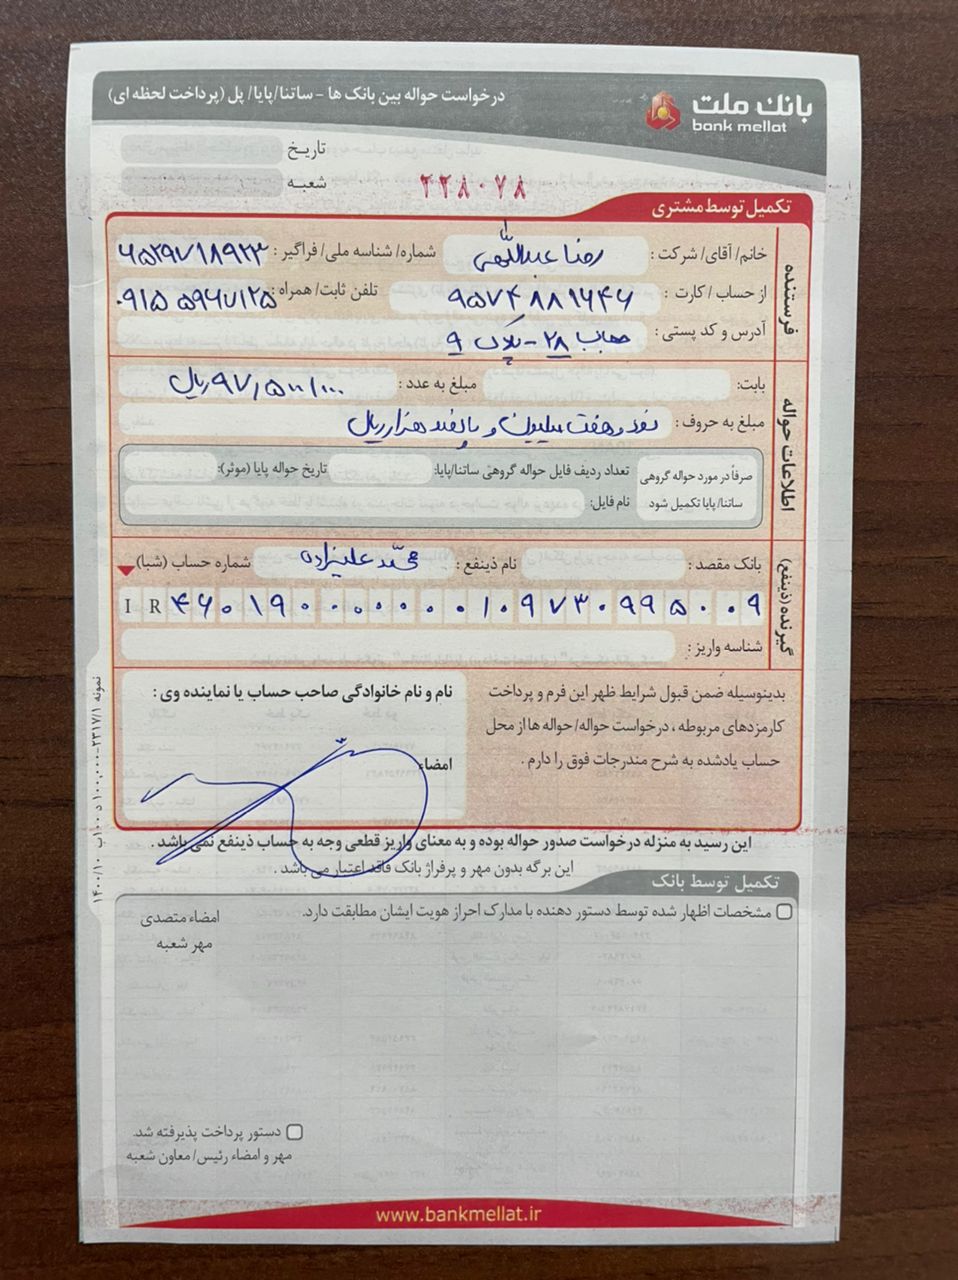 بانک ملت
bank mellat
درخواست حواله بین بانک ها - ساتنا/پایا/ پل (پرداخت لحظه ای)
تاریخ
شعبه
۲۲۸۰۷۸
تکمیل توسط مشتری
فرستنده
خانم/ آقای/ شرکت: رضا عبداللهی شماره/ شناسه ملی/ فراگیر: ۶۵۲۹۷۱۸۹۲۳
از حساب / کارت: ۹۵۷۴۸۸۹۶۴۶ تلفن ثابت/ همراه: ۰۹۱۵ ۵۹۶۷۱۲۵
آدرس و کد پستی: ۲۸ - پلاک ۹
اطلاعات حواله
بابت: مبلغ به عدد: ۹۷,۵۰۰,۰۰۰ ریال
مبلغ به حروف: نود و هفت میلیون و پانصد هزار ریال
صرفاً در مورد حواله گروهی ساتنا/پایا تکمیل شود
تعداد ردیف فایل حواله گروهی ساتنا/پایا: تاریخ حواله پایا (موثر):
نام فایل:
گیرنده (ذینفع)
بانک مقصد: نام ذینفع: محمد علیزاده شماره حساب (شبا)
IR ۴۶۰۱۹۰۰۰۰۰۰۰۰۱۰۹۷۳۰۹۹۵۰۰۹
شناسه واریز:
بدینوسیله ضمن قبول شرایط ظهر این فرم و پرداخت
کارمزدهای مربوطه ، درخواست حواله/ حواله ها از محل
حساب یادشده به شرح مندرجات فوق را دارم .
نام و نام خانوادگی صاحب حساب یا نماینده وی :
امضاء
این رسید به منزله درخواست صدور حواله بوده و به معنای واریز قطعی وجه به حساب ذینفع نمی باشد .
این برگه بدون مهر و پرفراژ بانک فاقد اعتبار می باشد .
تکمیل توسط بانک
مشخصات اظهار شده توسط دستور دهنده با مدارک احراز هویت ایشان مطابقت دارد.
امضاء متصدی
مهر شعبه
دستور پرداخت پذیرفته شد.
مهر و امضاء رئیس/ معاون شعبه
نمونه ۲۳۱۷/۱-۱۰۰,۰۰۰ د ۱۰۰ب ۱۴۰۰/۱۰
www.bankmellat.ir